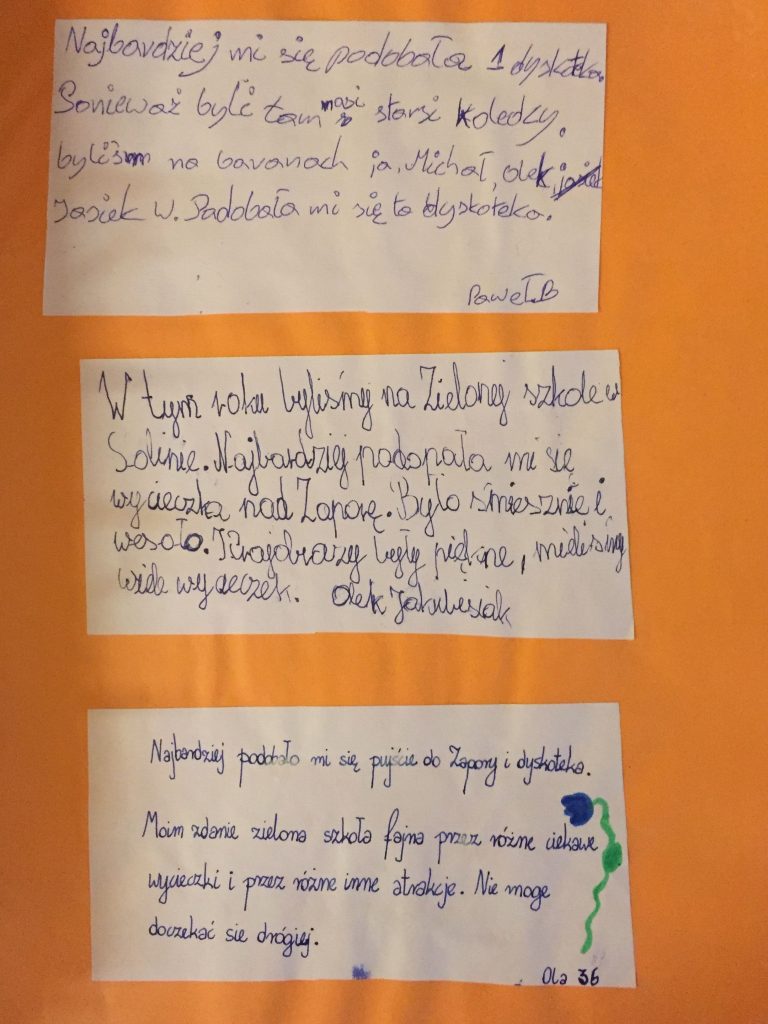 Najbardziej mi się podobała 1 dyskoteka.
Ponieważ byli tam nasi starsi koledzy.
byliśm na bavanach ja, Michał, Olek, jasiek
Jasiek W. Padobała mi się ta dyskoteka.
Paweł.B
W tym roku byliśmy na Zielonej szkole w
Solinie. Najbardziej podopała mi się
wycieczka nad Zaporę. Było śmiesznie i
wesoło. Krajobrazy były piękne, mieliśmy
wiele wycieczek. Olek Jakubisiak
Najbardziej podobało mi się pujście do Zapory i dyskoteka.
Moim zdanie zielona szkoła fajna przez różne ciekawe
wycieczki i przez różne inne atrakcje. Nie moge
doczekać sie drógiej.
Ola 3b